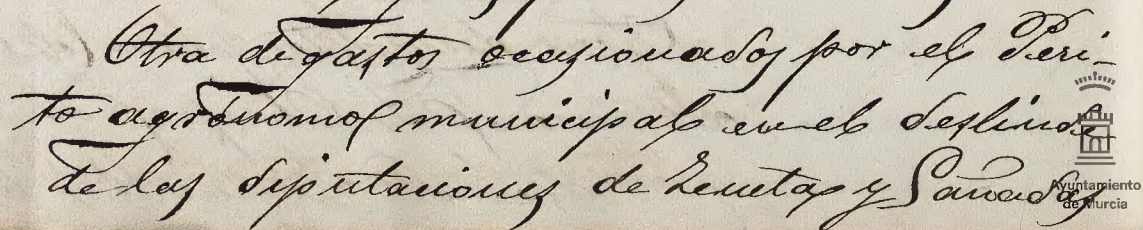 Otra de gastos ocasionados por el Peri-
to agrónomo municipal en el deslinde
de las diputaciones de Zeneta y Cañadas
Ayuntamiento
de Murcia